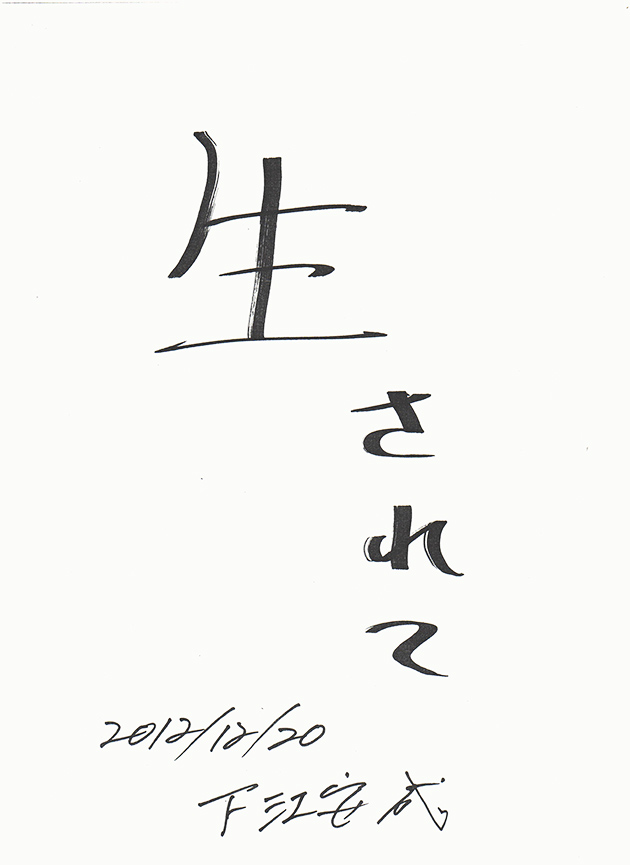 生されて
2012/12/20
下江安成